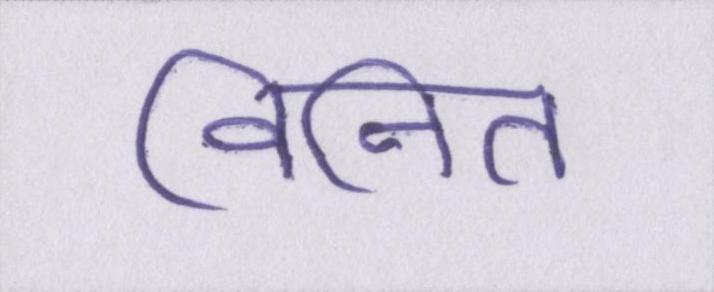 विनित